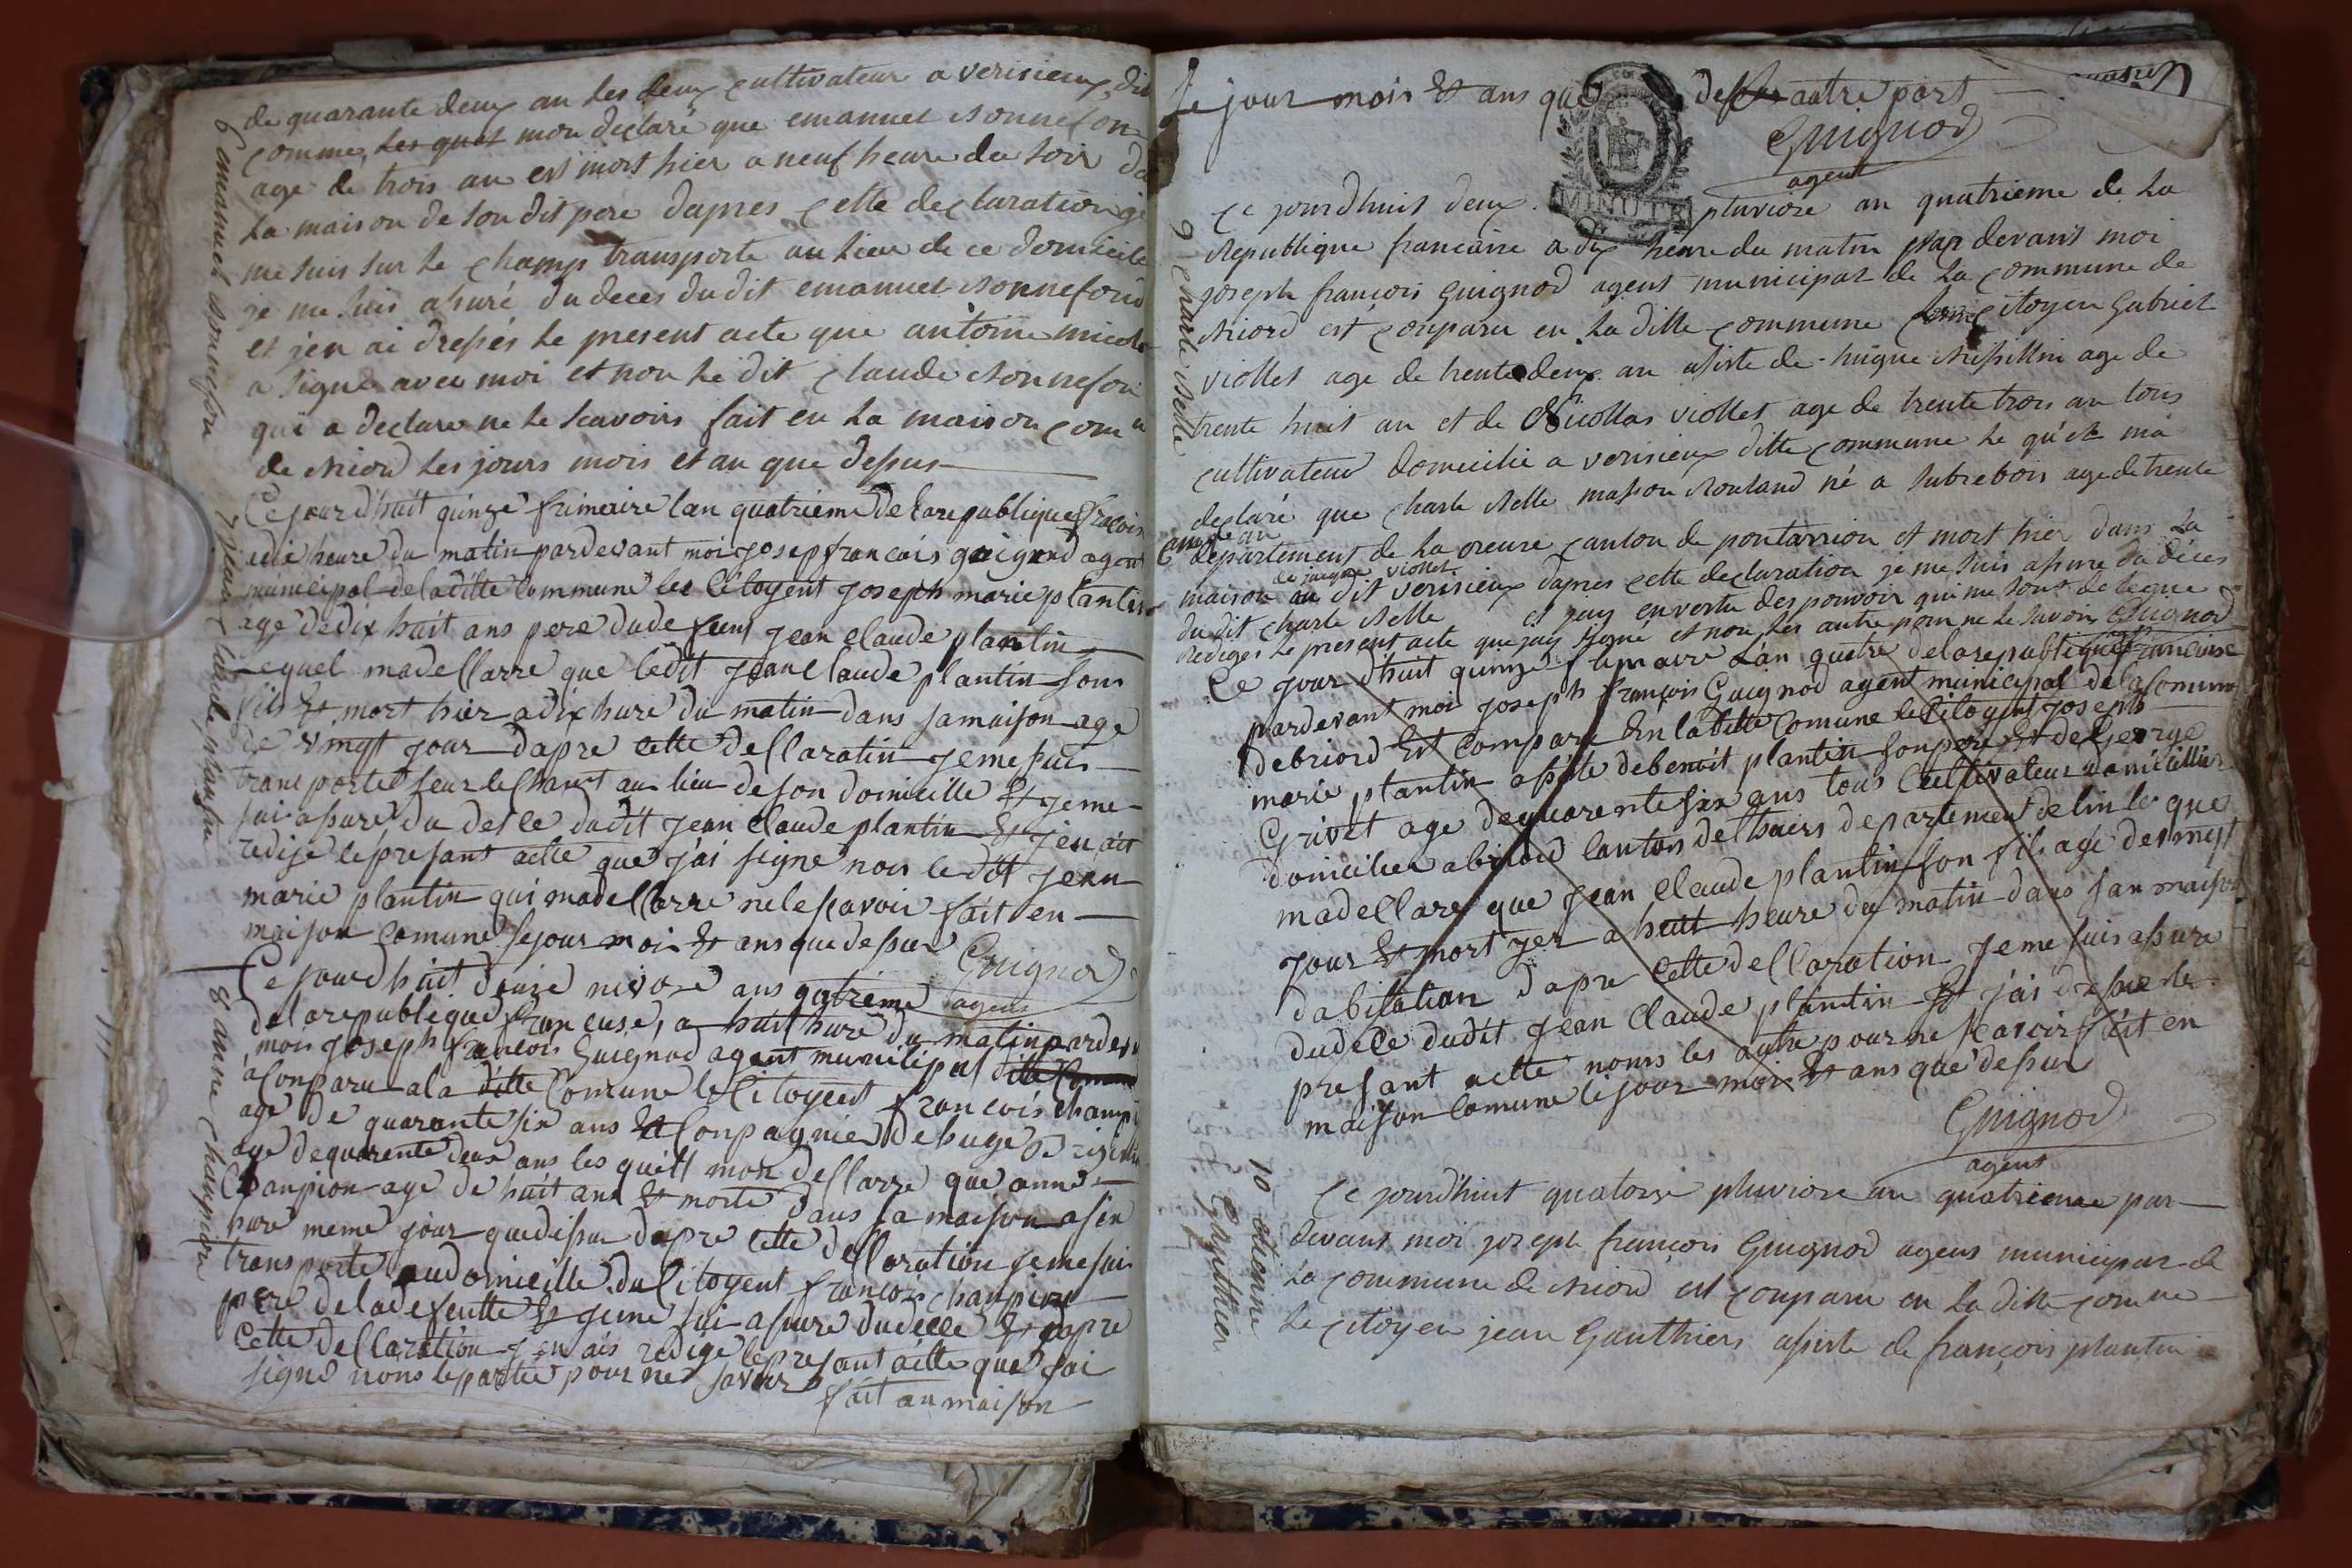 de quarante deux an les deux cultivateur a verisieux dit
comme, les quel mon declaré que emanuel Bonnefon
age de trois an est mort hier a neuf heure du soir da
la maison de son dit pere dapres cette declaration je
me suis sur le champ transporte au lieu de ce domicile
je me suis assuré du deces du dit emanuel Bonnefond
et jen ai dressés le present acte que antoine micol
a signe avec moi et non le dit Claude Bonnefon
qui a declare ne le scavoir fait en la maison com
de Briord les jours mois et an que dessus
6 emanuel Bonnefon
Ce jourdhuit quinze frimaire lan quatrieme de la republique francois
edix heure du matin pardevant moi josep francois guignod agent
municipal de laditte Commune les Citoyent joseph marie plantin
age dedix huit ans pere dude feunt jean claude plantin
Lequel madellarre que ledit jean claude plantin son
fils Et mort hier adix hure du matin dans samaison age
de vingt jour dapre cette dellaratin jemesuis
transportet seur le chant au lieu de son domicille Et jeme
suis assuré du des ce dudit jean claude plantin Et jen ait
redige le presant acte que j'ai signe nois le dit jean
marie plantin qui madellarre ne lescavoir fait en
maison Comune le jour moi Et ans que dessus
Guignod
agent
7 jean claude plantin
Ce jourdhuit douze nivose ans qatrieme
delarepublique francuse, a huit hure du matin pardev
moi joseph francois Guignod agent municipal ditte Comune
aconparu ala ditte Comune le Citoyent francois champi
age de quarante six ans Et Conpagnie de huge
age dequarente deux ans les quell mon dellarre que anne
Chanpion age de huit ans Et morte dans sa maison a six
hure meme jour que dissu dapre cette dellaration jemesui
transporte audomicille du Citoyent francois chanpion
pere deladefeutte Et jeme sui assure dudece Et dapre
cette dellaration jen ais redige le presant aitte que jai
signe nons lepartie pour ne savoir fait au maison
8 anne champion
le jour mois Et ans que de lautre part
Guignod
agent
Ce jourdhuit deux pluviose an quatrieme de la
Republique francaise a dix heure du matin par devant moi
joseph françois Guignod agent municipal de la commune de
Briord est conparu en la ditte commune le citoyen Gabriel
viollet age de trente deux an assiste de hugue Bressillin age de
trente huit an et de Nicollas viollet age de trente trois an tous
cultivateur domicilié a verisieux ditte commune le quel ma
declaré que charle Belle masson Rouland né a subrebois age de trente
an
departement de la creuse canton de pontarrion et mort hier dans la
de jacque viollet
maison au dit verisieux dapres cette declaration je me suis assure du déces
du dit charle Belle et jay en vertu des pouvoir qui me sont delegue
Rediges le present acte que jay signé et non les autre pour ne le savoir Guignod
agent
9 charle Belle
Ce jour d'huit quinze frimaire Lan quatre delarepublique francaise
pardevant moi joseph françois Guignod agent municipal dela Comune
debriord Est Comparu En la ditte Comune le Citoyent joseph
marie plantin assiste debenoit plantin son pere Et de George
Grivet age dequarente six ans tous Cultivateur domicillier
domicilier abriord Canton de lhuis departement de lin le que
madellare que jean claude plantin son fils age de vingt
jour Et mort yer a huit heure du matin dans san maison
dabitation dapre cette dellaration jeme suis assure
dudece dudit jean claude plantin Et j'ai dressé le
presant acte nons les autre pour ne scavoir fait en
maison Comune le jour mois Et ans que dessus
Guignod
agent
Ce jourdhuit quatorze pluviose an quatrieme par
devant moi joseph françois Guignod agent municipal de
la commune de Briord est conparu en la ditte comune
le citoyen jean Gauthier assiste de françois plantin
10 etienne Gauthier
MINUTE